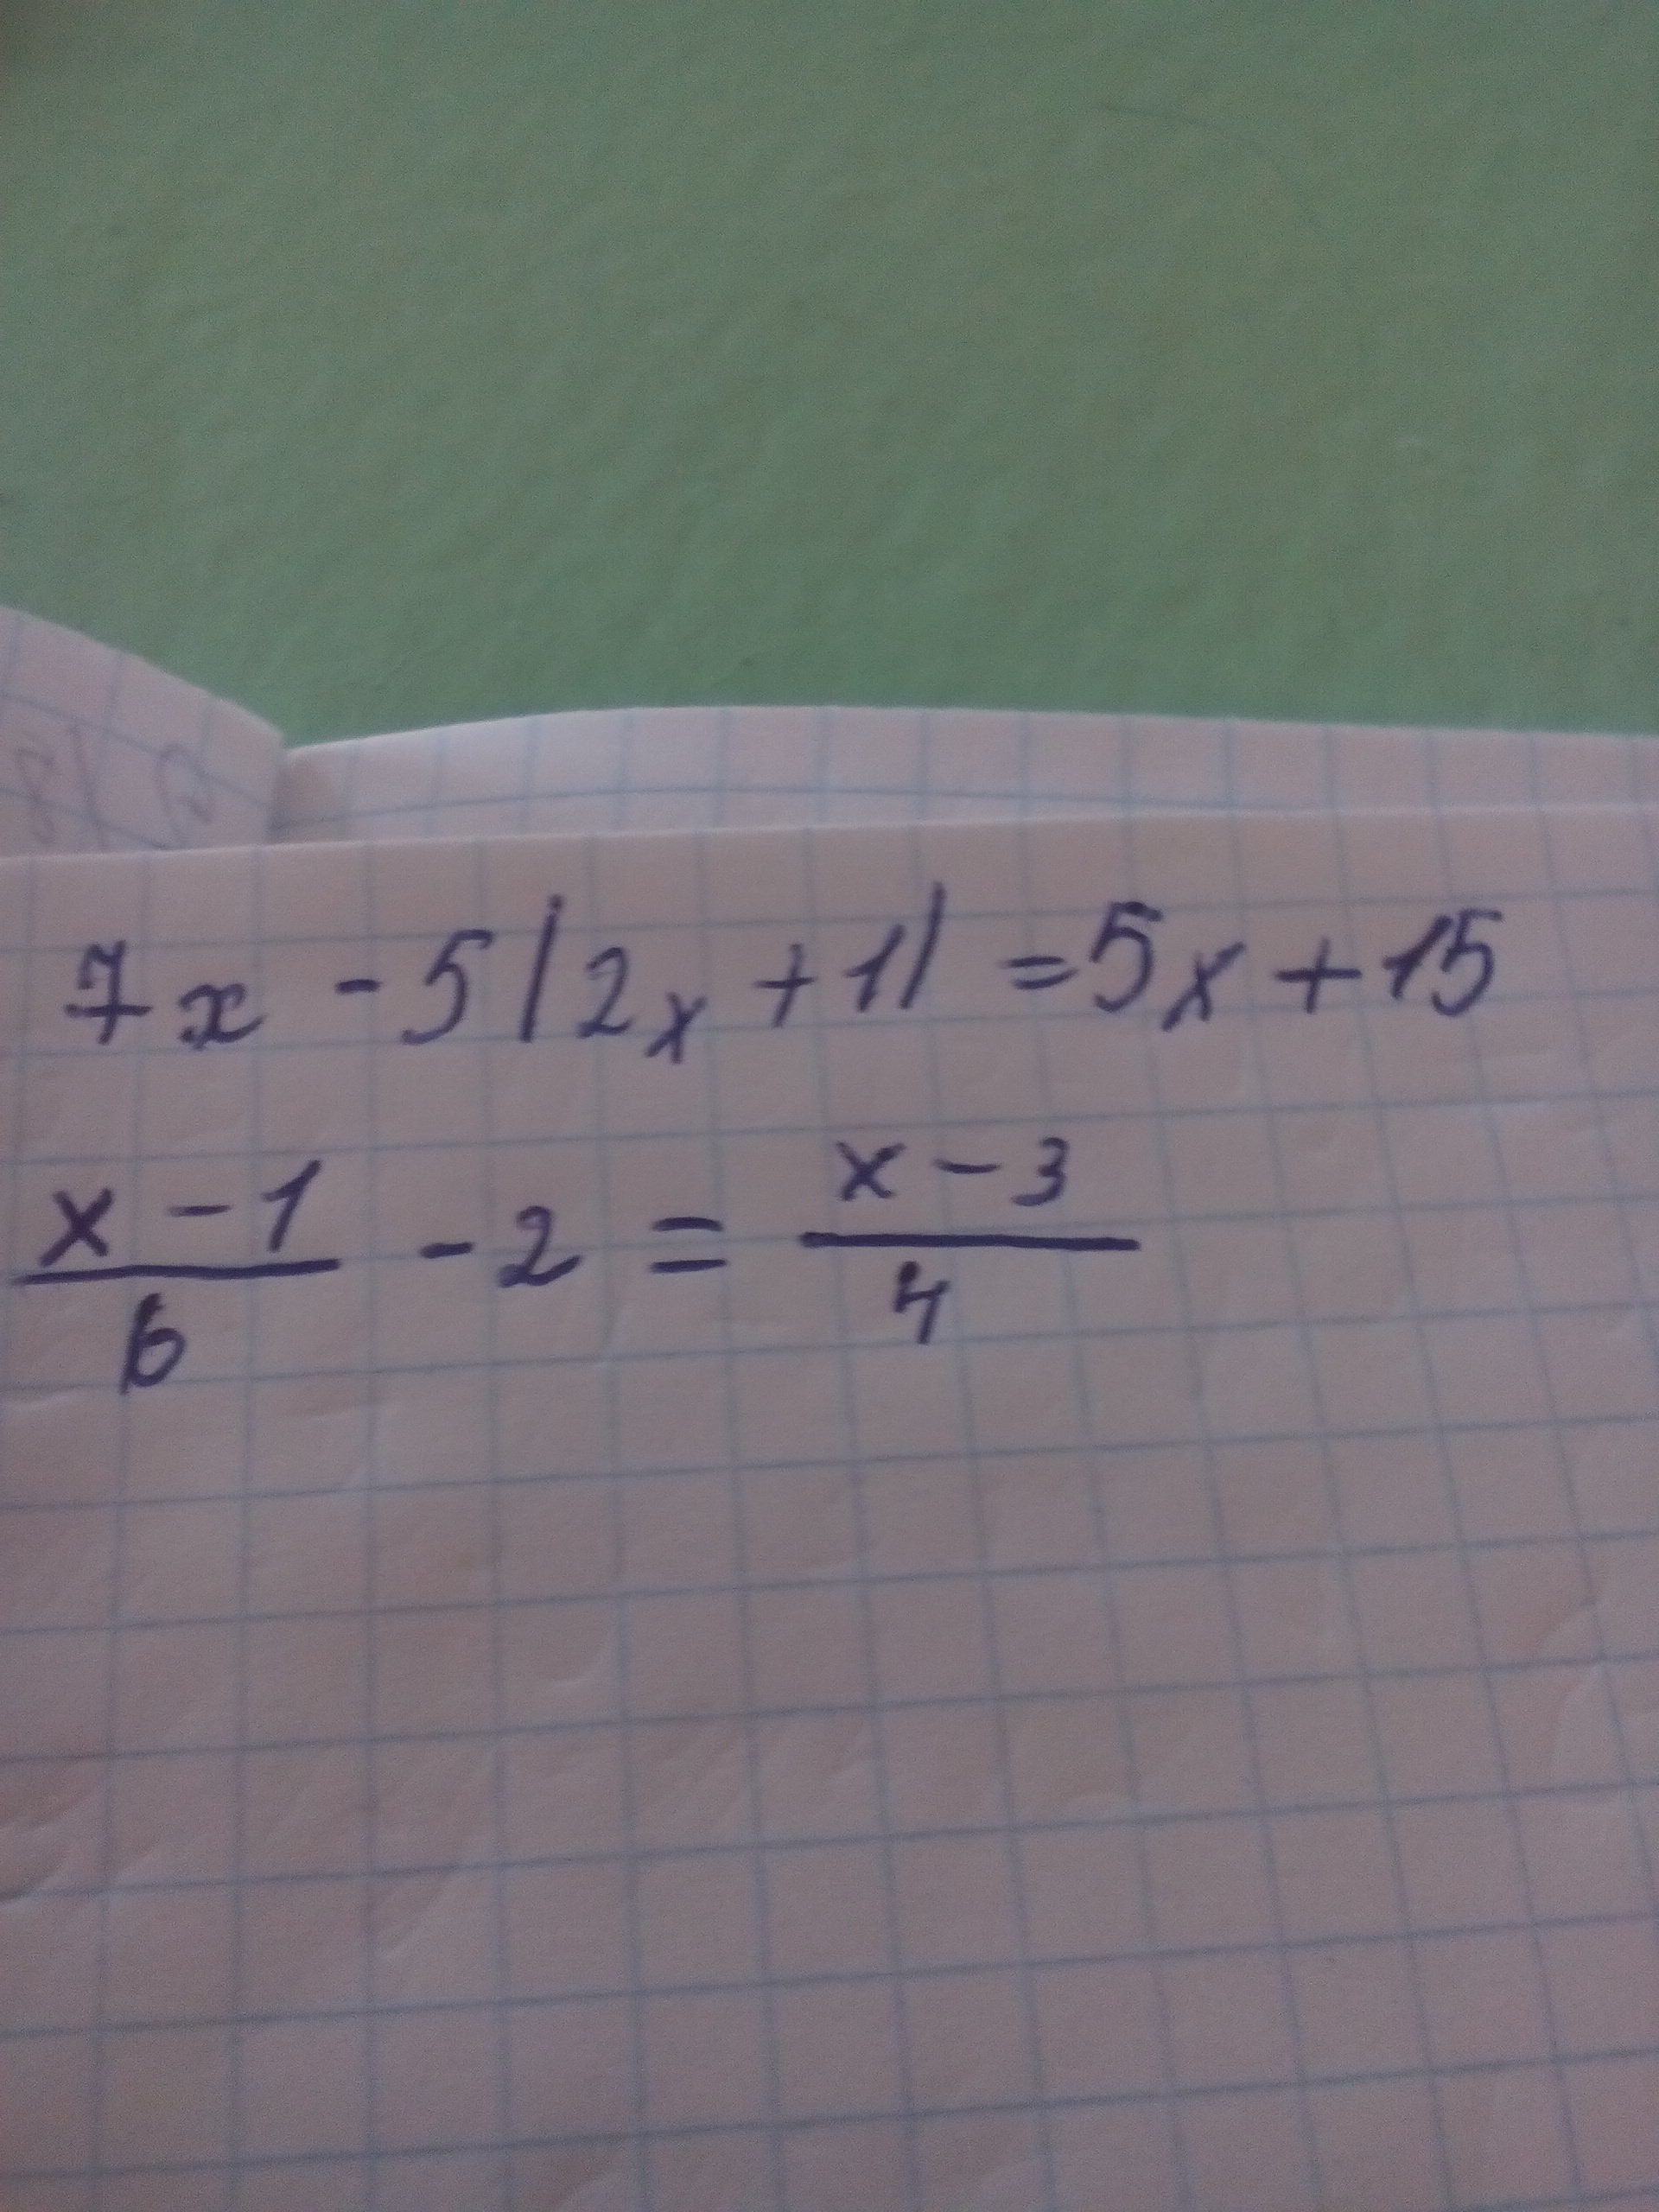 7x - 5|2x + 1| = 5x + 15
x - 1 / 6 - 2 = x - 3 / 4